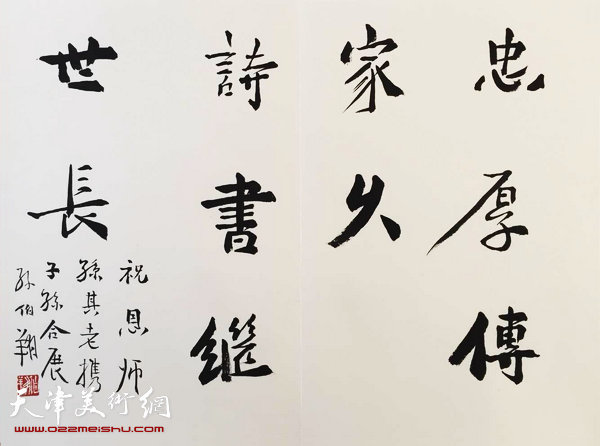 忠厚傳
家久
詩書繼
世長
祝恩师
孫其老携
子孫合展
孙伯翔
天津美術網
www.022meishu.com